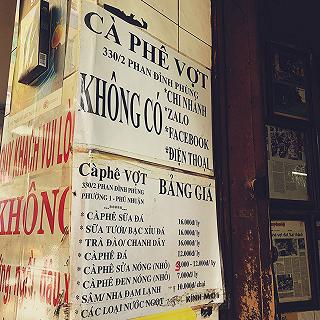 CÀ PHÊ VỢT
330/2 PHAN ĐÌNH PHÙNG
KHÔNG CÓ
*CHI NHÁNH
*ZALO
*FACEBOOK
*ĐIỆN THOẠI
KHÁCH VUI LÒ
KHÔNG
Càphê VỢT
330/2 PHAN ĐÌNH PHÙNG
PHƯỜNG 1 - PHÚ NHUẬN
BẢNG GIÁ
* CÀPHÊ SỮA ĐÁ 16.000đ/ ly
* SỮA TƯƠI/ BẠC XỈU ĐÁ 16.000đ/ ly
* TRÀ ĐÀO/ CHANH DÂY 16.000đ/ ly
* CÀPHÊ ĐÁ 12.000đ/ ly
* CÀPHÊ SỮA NÓNG (NHỎ) - 12.000đ/ ly
* CÀPHÊ ĐEN NÓNG (NHỎ) 7.000đ/ ly
* SÂM/ NHA ĐAM LẠNH 10.000đ/ chai
* CÁC LOẠI NƯỚC NGỌT
KÍNH MỜI